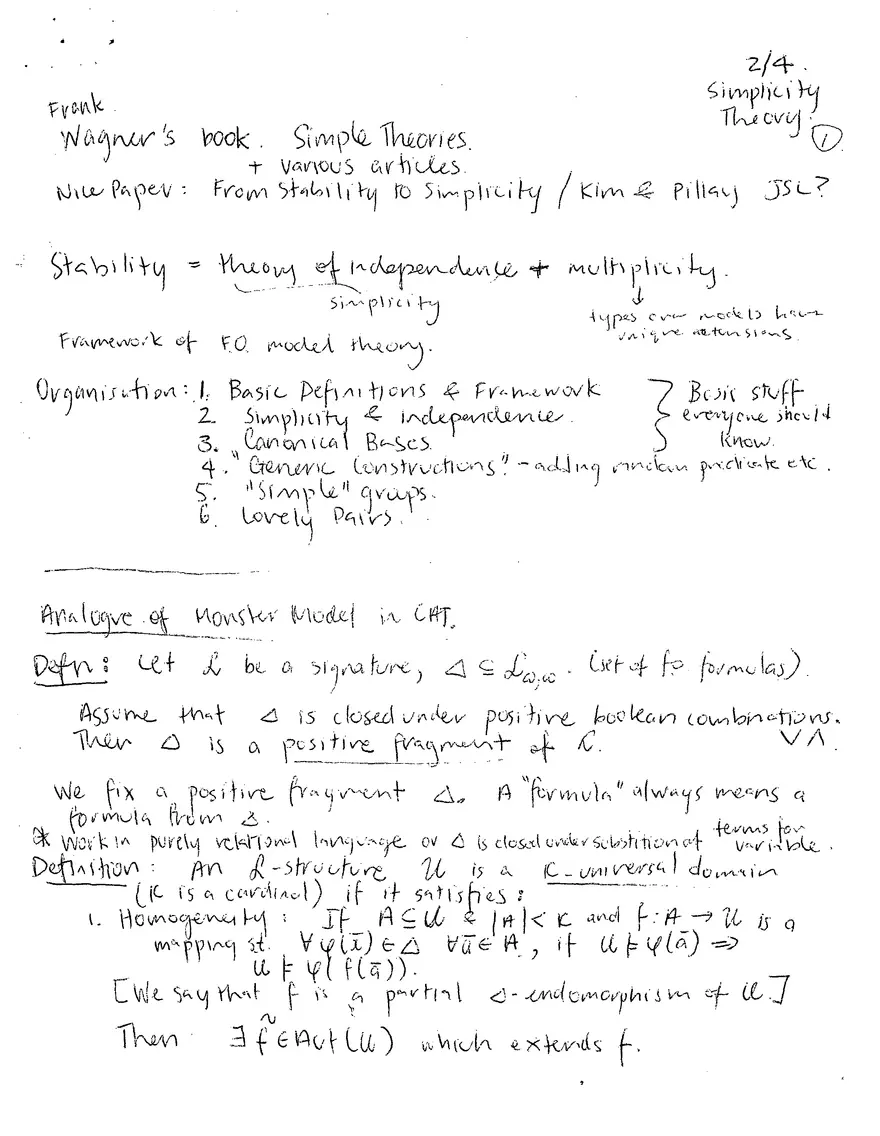 2/4.
Simplicity
Theory.
1
Frank
Wagner's book. Simple Theories.
+ various articles.
Nice Paper: From Stability to Simplicity / Kim & Pillay JSL?
Stability = theory of independence + multiplicity.
simplicity
↓
types over models have
unique extensions.
Framework of F.O. model theory.
Organisation: 1. Basic Definitions & Framework
2. Simplicity & independence.
3. Canonical Bases.
Basic stuff
everyone should
know.
4. "Generic Constructions" - adding random predicate etc.
5. "Simple" groups.
6. Lovely Pairs.
Analogue of Monster Model in CAT.
Defn: Let L be a signature, Δ ⊆ L_{ω,ω}. (set of fo formulas).
Assume that Δ is closed under positive boolean combinations.
∨ ∧.
Then Δ is a positive fragment of L.
We fix a positive fragment Δ. A "formula" always means a
formula from Δ.
* Work in purely relational language or Δ is closed under substitution of terms for
variable.
Definition: An L-structure U is a K-universal domain
(K is a cardinal) if it satisfies:
1. Homogeneity: If A ⊆ U & |A| < K and f: A → U is a
mapping st. ∀φ(x̄) ∈ Δ ∀ā ∈ A, if U ⊨ φ(ā) ⇒
U ⊨ φ(f(ā)).
[We say that f is a partial Δ-endomorphism of U.]
Then ∃ f̃ ∈ Aut(U) which extends f.